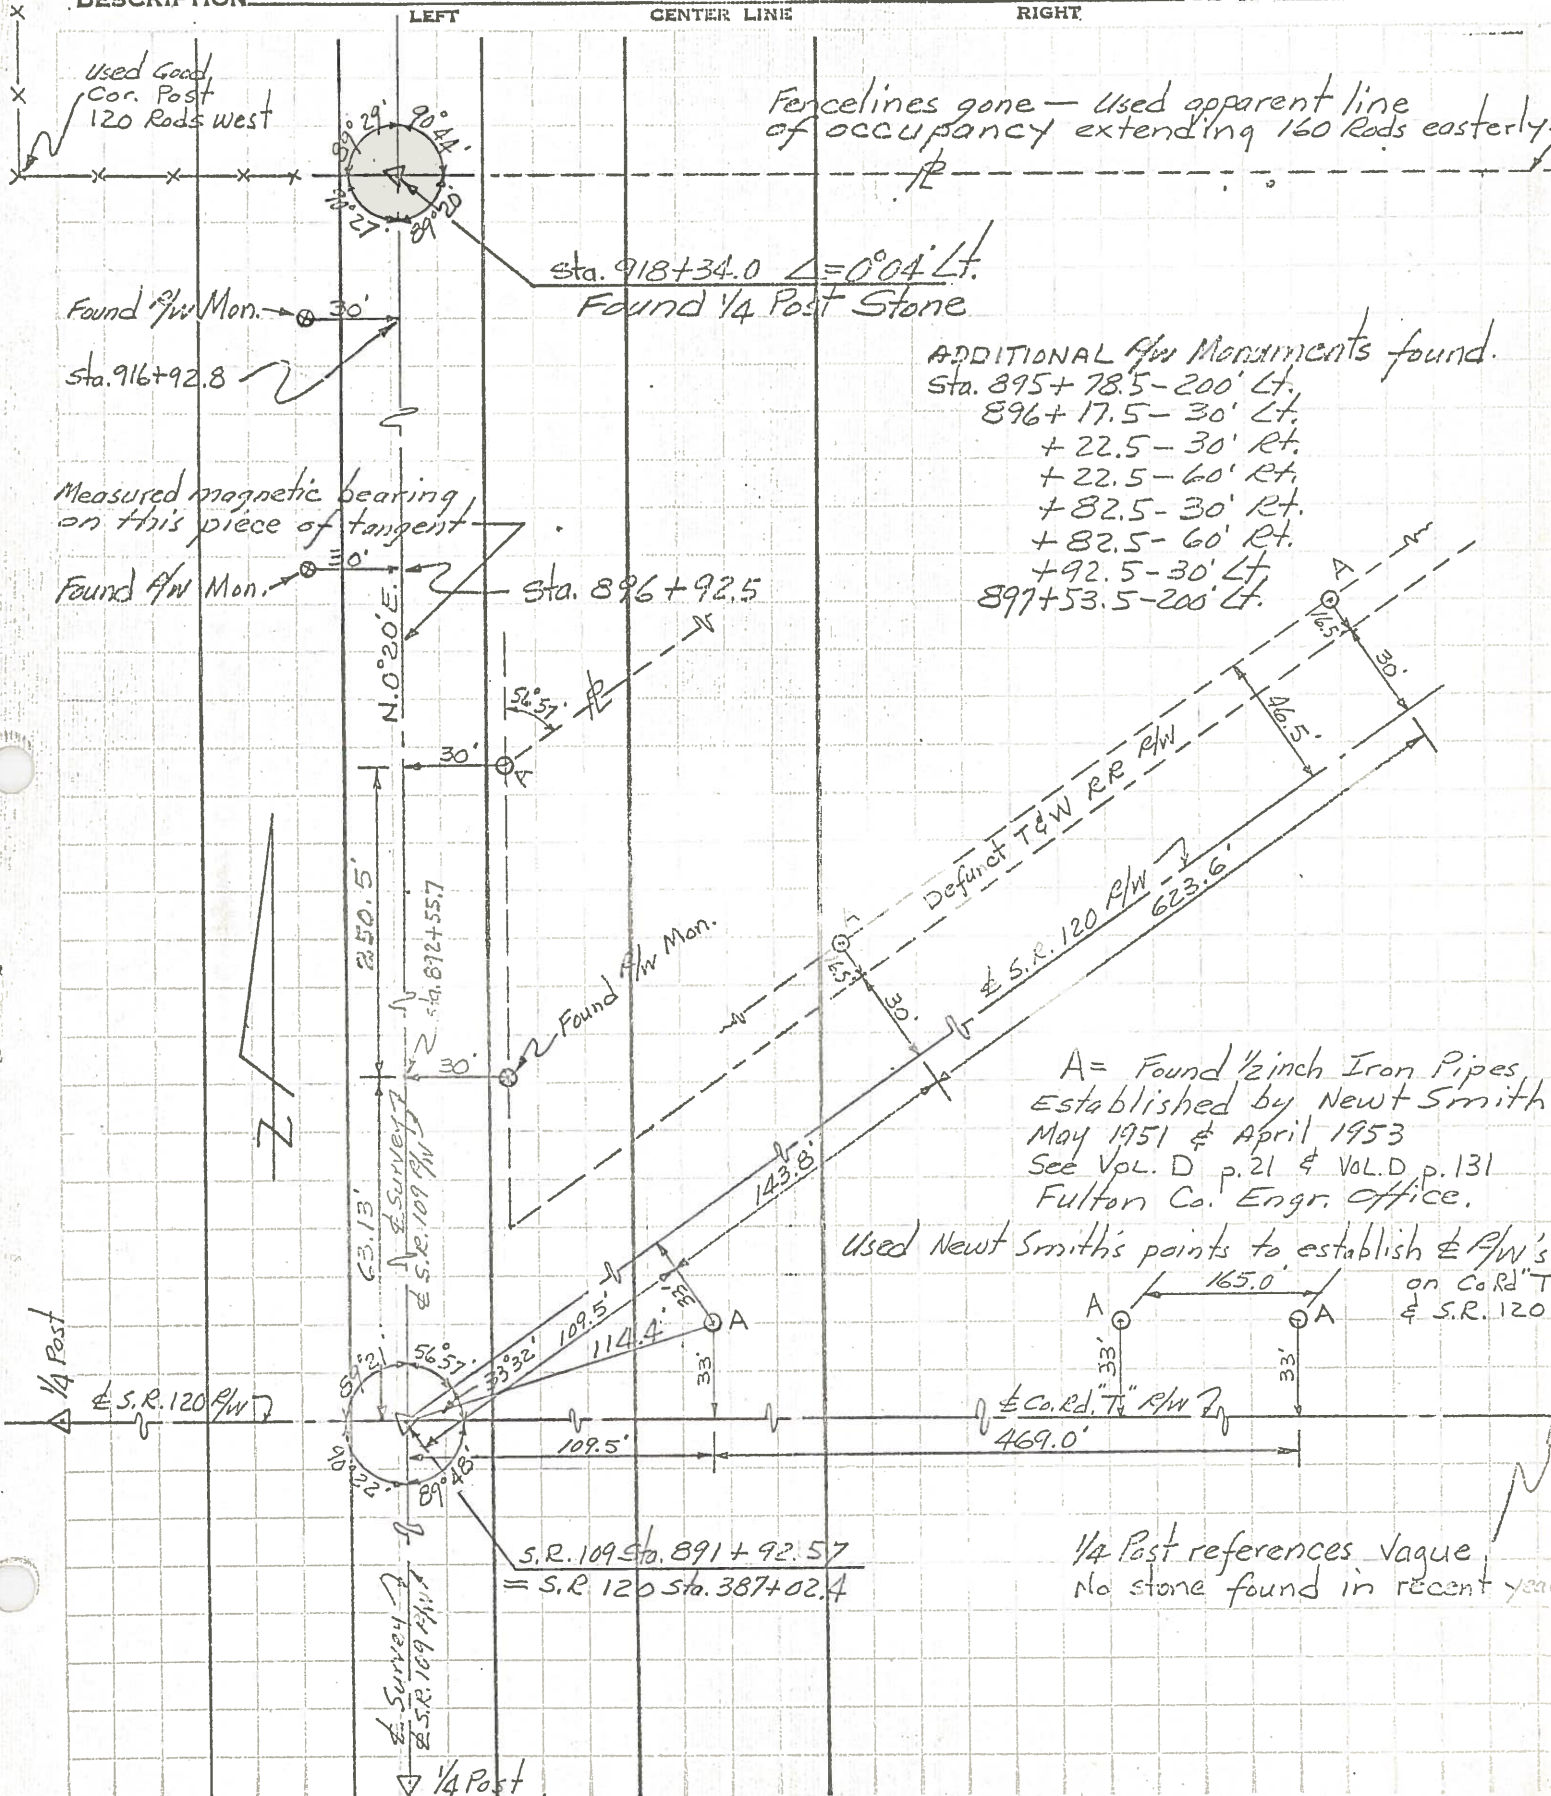 DESCRIPTION
LEFT
CENTER LINE
RIGHT
Used Good
Cor. Post
120 Rods west
Fencelines gone — Used apparent line
of occupancy extending 160 Rods easterly
89° 29'
90° 44'
90° 27'
89° 20'
℄
Sta. 918+34.0 ∠=0°04' Lt.
Found 1/4 Post Stone
Found R/W Mon.
30'
Sta. 916+92.8
ADDITIONAL R/W Monuments found.
Sta. 895+78.5-200' Lt.
896+17.5-30' Lt.
+22.5-30' Rt.
+22.5-60' Rt.
+82.5-30' Rt.
+82.5-60' Rt.
+92.5-30' Lt.
897+53.5-200' Lt.
Measured magnetic bearing
on this piece of tangent
Found R/W Mon.
30'
Sta. 896+92.5
N.0°20'E.
56°57'
℄
30'
A
A
16.5'
30'
46.5'
Defunct T&W RR R/W
℄ S.R. 120 R/W
623.6'
250.5'
Sta. 892+55.7
Found R/W Mon.
16.5'
30'
30'
A= Found 1/2 inch Iron Pipes
Established by Newt Smith
May 1951 & April 1953
See VOL. D p.21 & VOL.D p.131
Fulton Co. Engr. Office.
Used Newt Smith's points to establish ℄ R/W's
on Co Rd "T
& S.R. 120
N
63.13'
℄ Survey
℄ S.R. 109 R/W
143.8'
165.0'
A
A
33'
33'
1/4 Post
℄ S.R. 120 R/W
89° 21'
56°57'
33°32'
109.5'
114.4'
33'
A
33'
℄ Co. Rd. "T" R/W
109.5'
469.0'
90°22'
89°48'
S.R. 109 Sta. 891+92.57
= S.R. 120 Sta. 387+02.4
1/4 Post references Vague
No stone found in recent
℄ Survey
℄ S.R. 109 R/W
1/4 Post